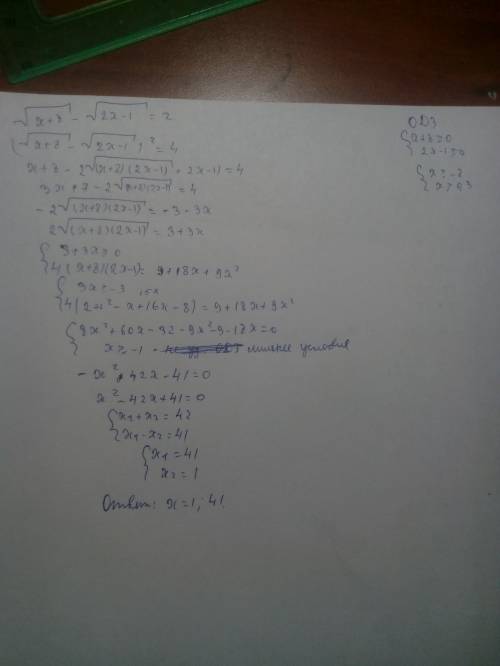 √x+8 - √2x-1 = 2
(√x+8 - √2x-1)² = 4
x+8 - 2√(x+8)(2x-1) + 2x-1) = 4
3x + 7 - 2√(x+8)(2x-1) = 4
- 2√(x+8)(2x-1) = -3 - 3x
2√(x+8)(2x-1) = 3+3x
{ 3+3x ≥ 0
4(x+8)(2x-1) = 9+18x+9x²
{ 3x ≥ -3 15x
4(2x² - x + 16x - 8) = 9+18x+9x²
{ 8x² + 60x - 32 - 9x² - 9 - 18x = 0
x ≥ -1 - лишнее условие
- x² + 42x - 41 = 0
x² - 42x + 41 = 0
{ x₁ + x₂ = 42
x₁ · x₂ = 41
{ x₁ = 41
x₂ = 1
Ответ: x = 1; 41.
ОДЗ
{ x+8 ≥ 0
2x-1 ≥ 0
{ x ≥ -8
x ≥ 0,5